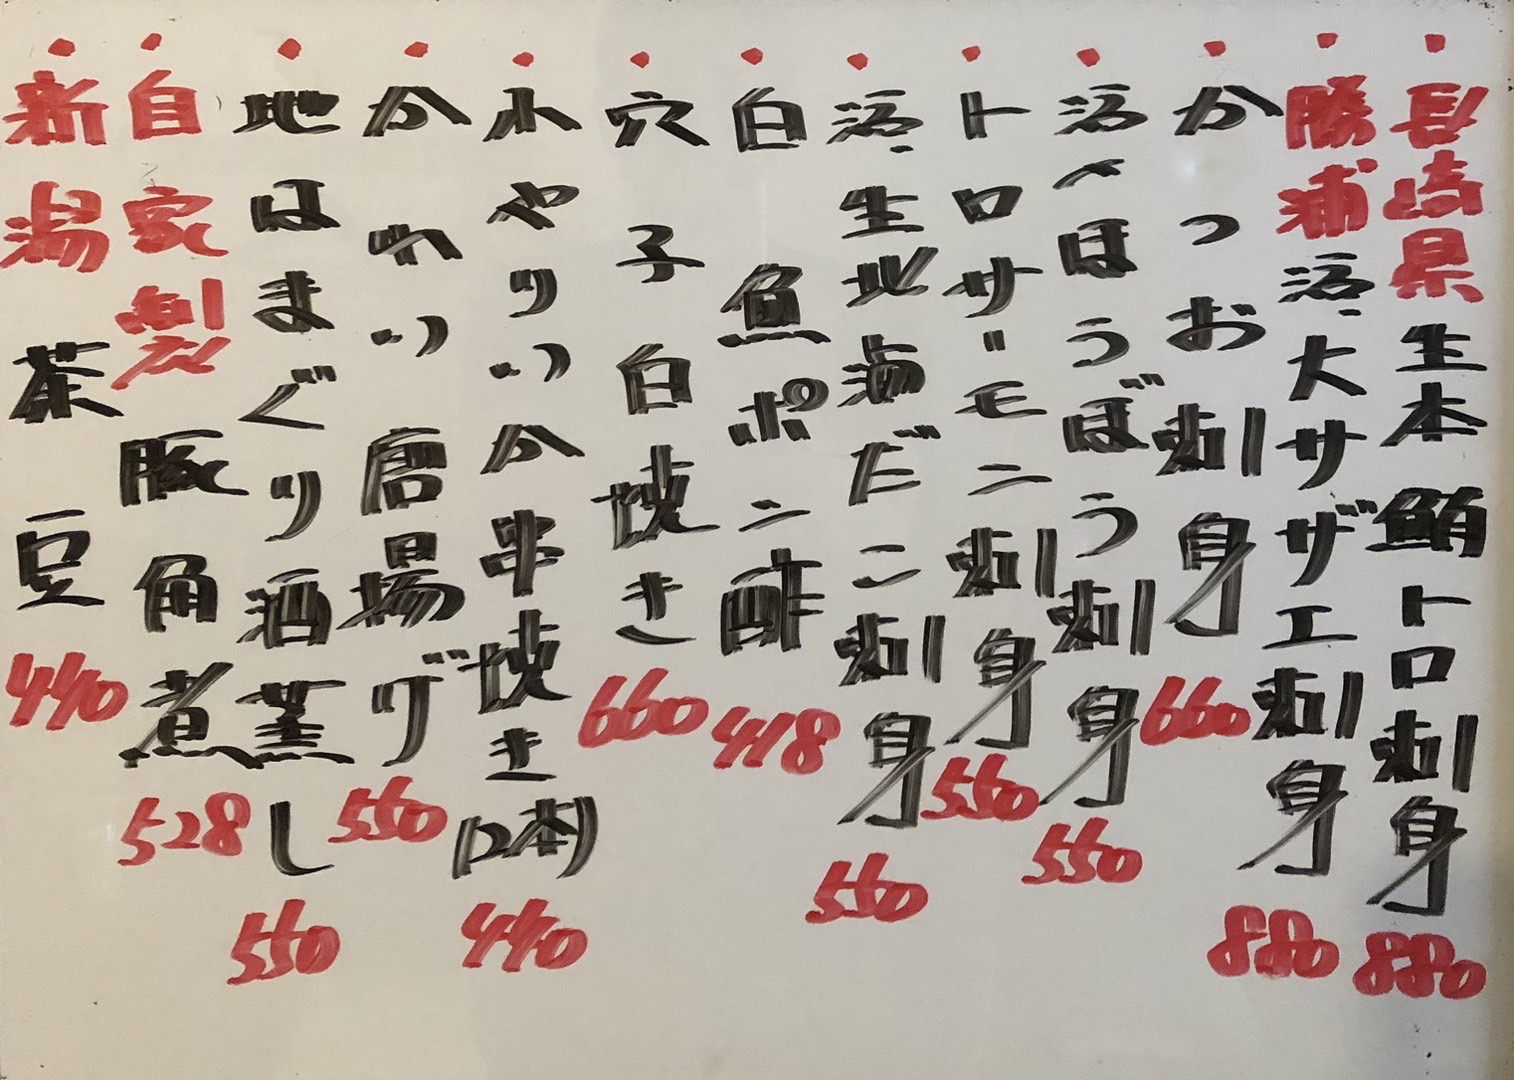 ・長崎県生本鮪トロ刺身 880
・勝浦活大サザエ刺身 880
・かつお刺身 660
・活〆ほうぼう刺身 550
・トロサーモン刺身 550
・活生地海だこ刺身 550
・白魚ポン酢 418
・穴子白焼き 660
・小やりいか串焼き(2本) 440
・かれい唐揚げ 550
・地はまぐり酒蒸し 550
・自家製豚角煮 528
・新潟茶豆 440